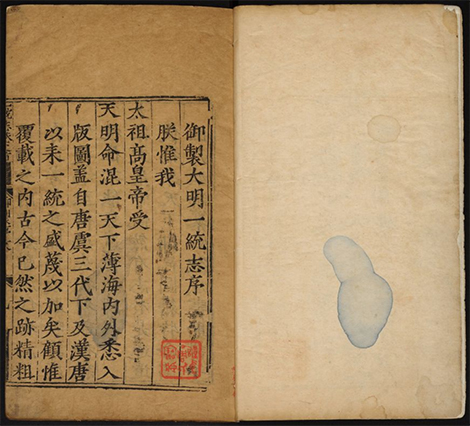 御製大明一統志序
朕惟我
太祖高皇帝受
天明命混一天下薄海內外悉入
版圖盖自唐虞三代下及漢唐
以来一統之盛蔑以加矣顧惟
覆載之內古今已然之跡精粗